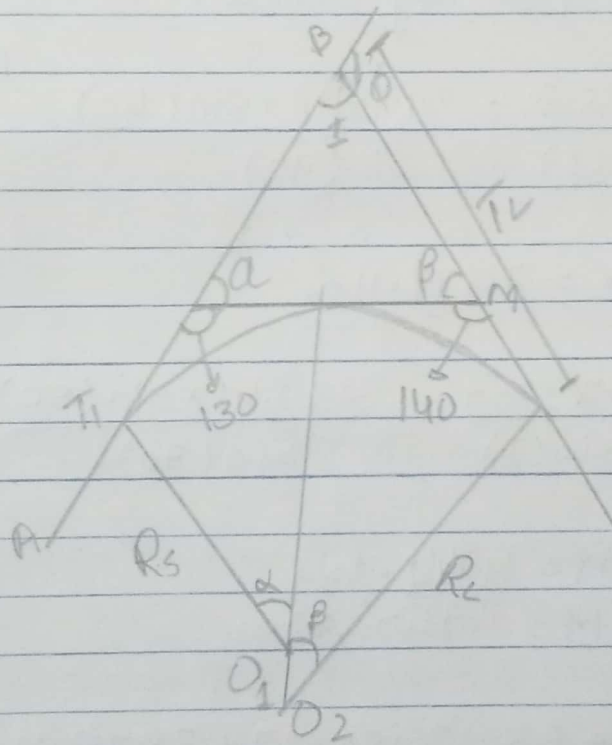 B
O
I
TL
a
β
M
T1
130
140
A
Rs
RL
α
β
O1
O2